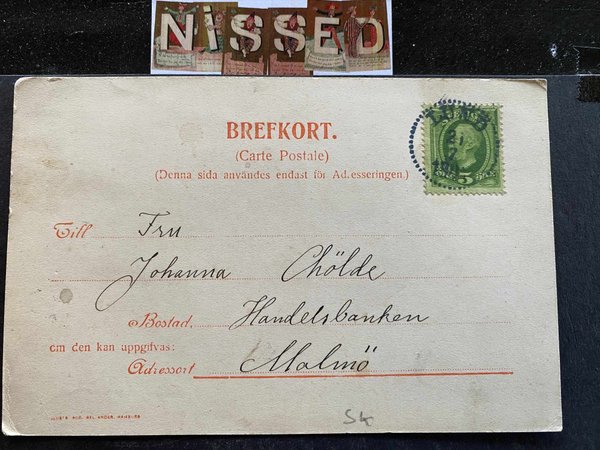 NiSSED
BREFKORT.
(Carte Postale)
(Denna sida användes endast för Adresseringen.)
LUND
SVERIGE
5
Till Fru
Johanna Chölde
Bostad. Handelsbanken
om den kan uppgifvas:
Adressort Malmö